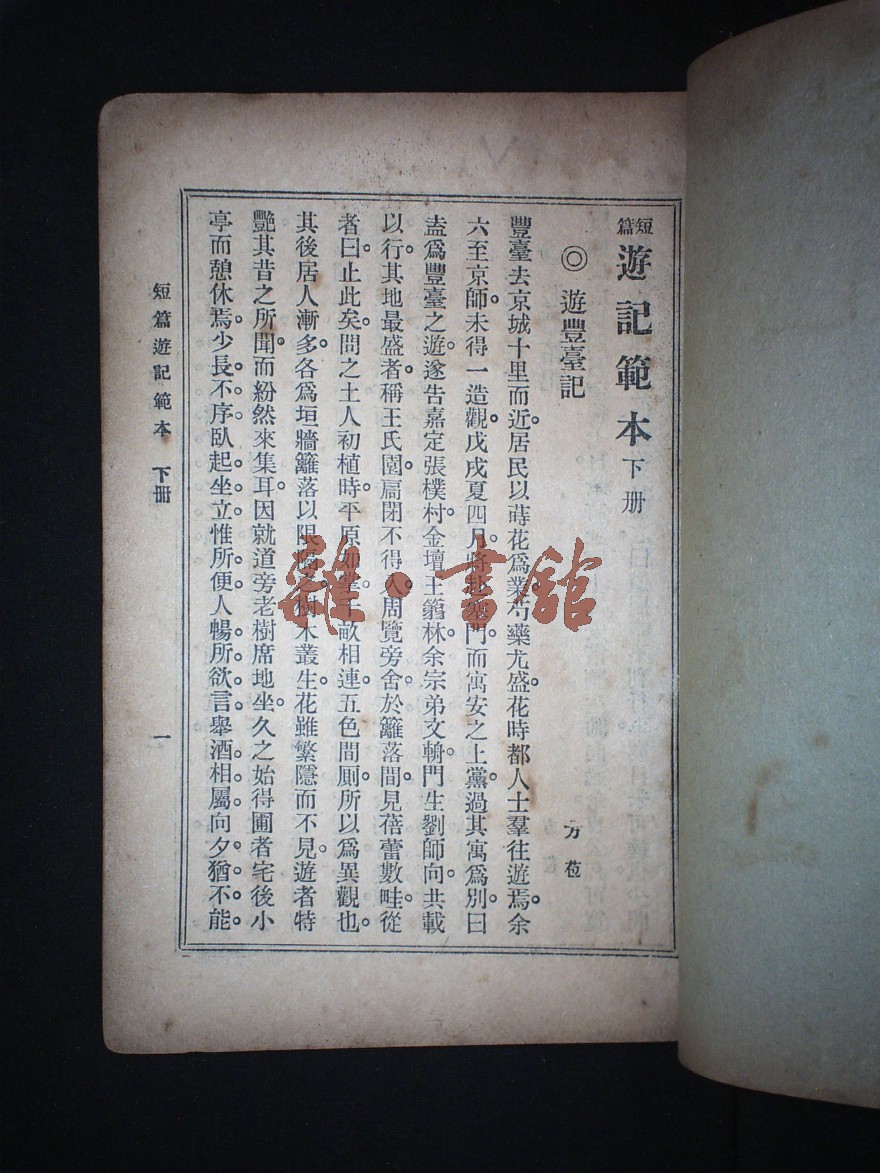 短篇遊記範本下册
◎遊豐臺記 方苞
豐臺去京城十里而近。居民以蒔花爲業。芍藥尤盛。花時都人士羣往遊焉。余
六至京師。未得一造觀。戊戌夏四月。將赴塞門。而寓安之上黨。過其寓爲別。曰
盍爲豐臺之遊。遂告嘉定張樸村。金壇王篛林。余宗弟文輈。門生劉師向。共載
以行。其地最盛者。稱王氏園。扃閉不得入。周覽旁舍。於籬落間見蓓蕾數畦。從
者曰。止此矣。問之土人。初植時平原如掌。千畝相連。五色間厠。所以爲異觀也。
其後居人漸多。各爲垣牆籬落以限隔之。樹木叢生。花雖繁隱而不見。遊者特
艷其昔之所聞。而紛然來集耳。因就道旁老樹席地坐。久之始得圃者宅後小
亭而憩休焉。少長不序。臥起坐立。惟所便人。暢所欲言。舉酒相屬。向夕猶不能
短篇遊記範本 下册 一
雜·書館